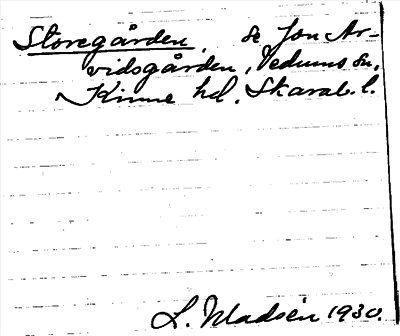 Storegården, se Jon Ar-
vidsgården, Vedums sn,
Kinne hd, Skarab. l.
L. Madsén 1930.